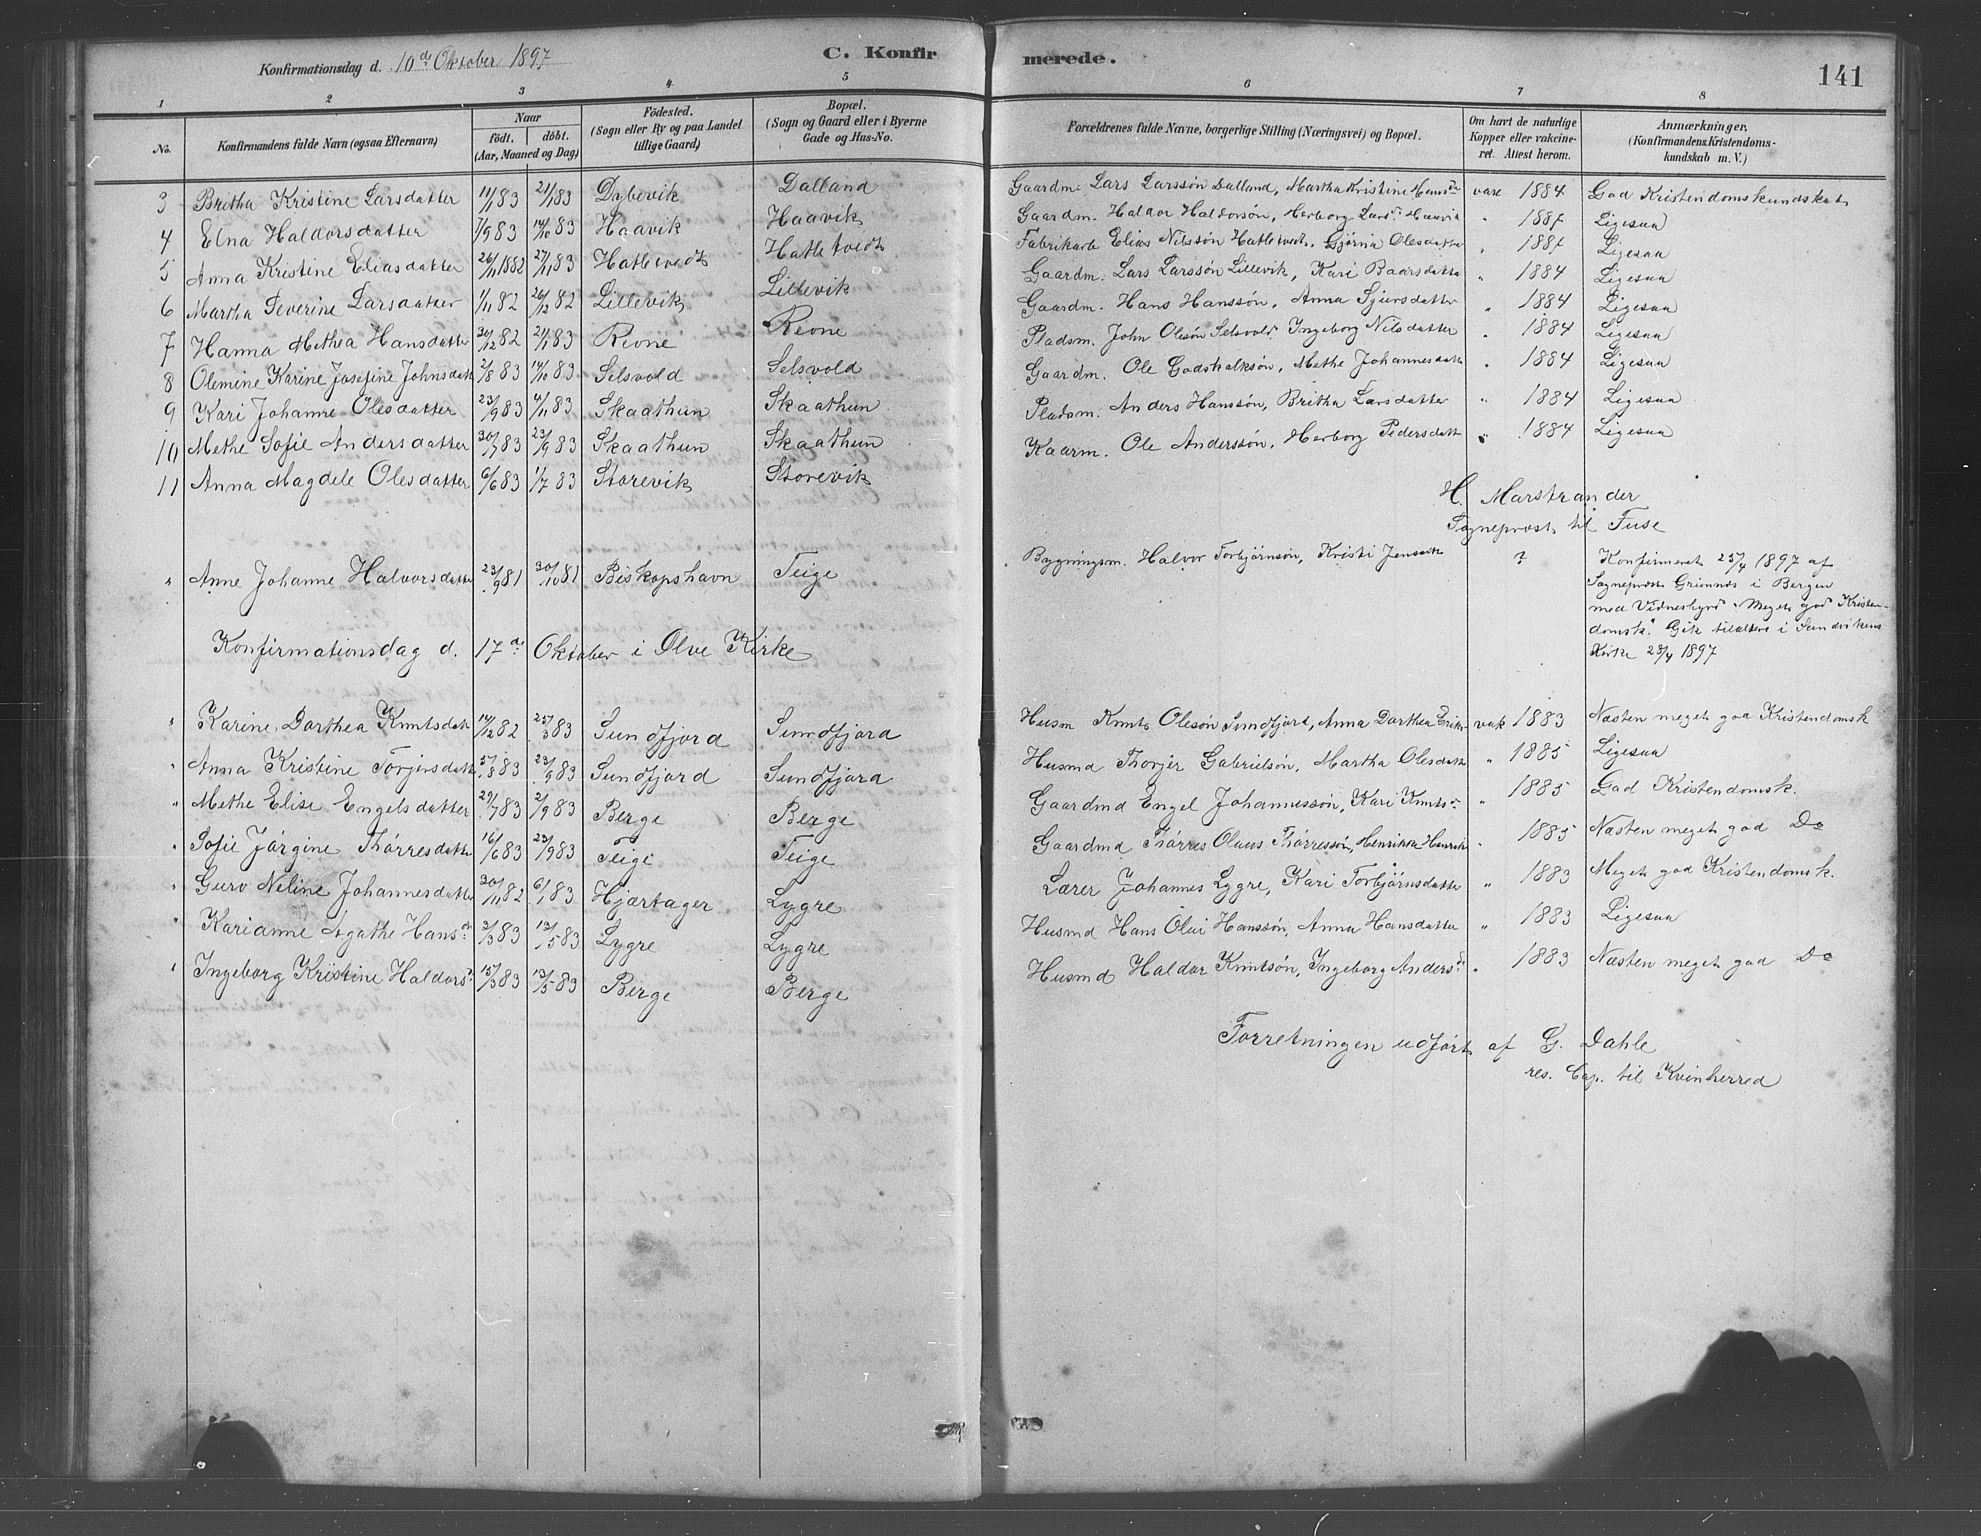 Konfirmationsdag d. 10de Oktober 1897
C. Konfirmerede.
141
1 2 3 4 5 6 7 8
No. Konfirmandens fulde Navn (ogsaa Efternavn) Naar født. døbt. (Aar, Maaned og Dag) Fødested. (Sogn eller By og paa Landet tillige Gaard) Bopæl. (Sogn og Gaard eller i Byerne Gade og Hus-No. Forældrenes fulde Navne, borgerlige Stilling (Næringsvei) og Bopæl. Om havt de naturlige Kopper eller vakcineret. Attest herom. Anmærkninger. (Konfirmandens Kristendomskundskab m. V.)
3 Britha Kristine Larsdatter 11/1 83 21/1 83 Dybevik Dalland Gaardm Lars Larssøn Dalland, Martha Kristine Hansdr vacc 1884 God Kristendomskundskab
4 Elna Haldorsdatter 7/9 83 14/10 83 Haavik Haavik Gaardm. Haldor Haldorsøn, Herborg Larsd. Haavik " 1887 Ligesaa
5 Anna Kristine Eliasdatter 26/11 1882 27/11 83 Hatletvedt Hatletvedt Fabrikarb Elias Nilssøn Hatletvedt, Gjørina Olesdatter " 1887 Ligesaa
6 Martha Severine Larsdatter 1/11 82 26/12 82 Lillevik Lillevik Gaardm. Lars Larssøn Lillevik, Kari Baarsdatter " 1884 Ligesaa
7 Hanna Methea Hansdatter 20/12 82 21/1 83 Revne Revne Gaardm. Hans Hanssøn, Anna Sjursdatter " 1884 Ligesaa
8 Olemine Karine Josefine Johnsdatt 2/8 83 14/10 83 Selsvold Selsvold Pladsm. John Olesøn Selsvold, Ingeborg Nilsdatter " 1884 Ligesaa
9 Kari Johanne Olesdatter 23/9 83 4/11 83 Skaathun Skaathun Gaardm. Ole Godskalksøn, Methe Johannesdatt " 1884 Ligesaa
10 Methe Sofie Andersdatter 30/7 83 23/9 83 Skaathun Skaathun Pladsm. Anders Hanssøn, Britha Larsdatter " 1884 Ligesaa
11 Anna Magdele Olesdatter 6/6 83 1/7 83 Storevik Storevik Kaarm. Ole Anderssøn, Herborg Pedersdatt " 1884 Ligesaa
H. Marstrander
Sogneprest til Fuse
" Anne Johanne Halvorsdatter 23/9 81 30/10 81 Biskopshavn Teige Bygningsm. Halvor Torbjørnsøn, Kristi Jensdtr ? Konfirmeret 25/4 1897 af
Sogneprest Grimnes i Bergen
med Vidnesbyrd "Meget god Kristen-
domsk." Gik tilalters i Sandvikens
Kirke 28/4 1897
Konfirmationsdag d. 17de Oktober i Ølve Kirke
" Karine Dorthea Knutsdatt 14/12 82 25/3 83 Sundfjord Sundfjord Husm Knut Olesøn Sundfjord, Anna Dorthea Eriks vak 1883 Næsten meget god Kristendomsk
" Anna Kristine Torjersdatt 5/8 83 23/9 83 Sundfjord Sundfjord Husmd Thorjer Gabrielsøn, Martha Olesdatt " 1885 Ligesaa
" Methe Elise Engelsdatter 29/7 83 2/9 83 Berge Berge Gaardmd Engel Johannessøn, Kari Knutsdr " 1885 God Kristendomsk.
" Sofie Jørgine Thørresdatter 16/6 83 23/9 83 Teige Teige Gaardmd Thørres Olaus Thørressøn, Henrikka Henrik " 1885 Næsten meget god Do
" Guro Neline Johannesdatter 30/11 82 6/1 83 Hjørtager Lygre Lærer Johannes Lygre, Kari Torbjørnsdatter " 1883 Meget god Kristendomsk.
" Karianne Agathe Hansdr 3/3 83 13/5 83 Lygre Lygre Husmd Hans Olai Hanssøn, Anna Hansdatter " 1883 Ligesaa
" Ingeborg Kristine Haldorsd 15/3 83 13/5 83 Berge Berge Husmd Haldor Knutsøn, Ingeborg Andersd " 1883 Næsten meget god Do
Forretningen udført af G. Dahle
res. Cap. til Kvinherred